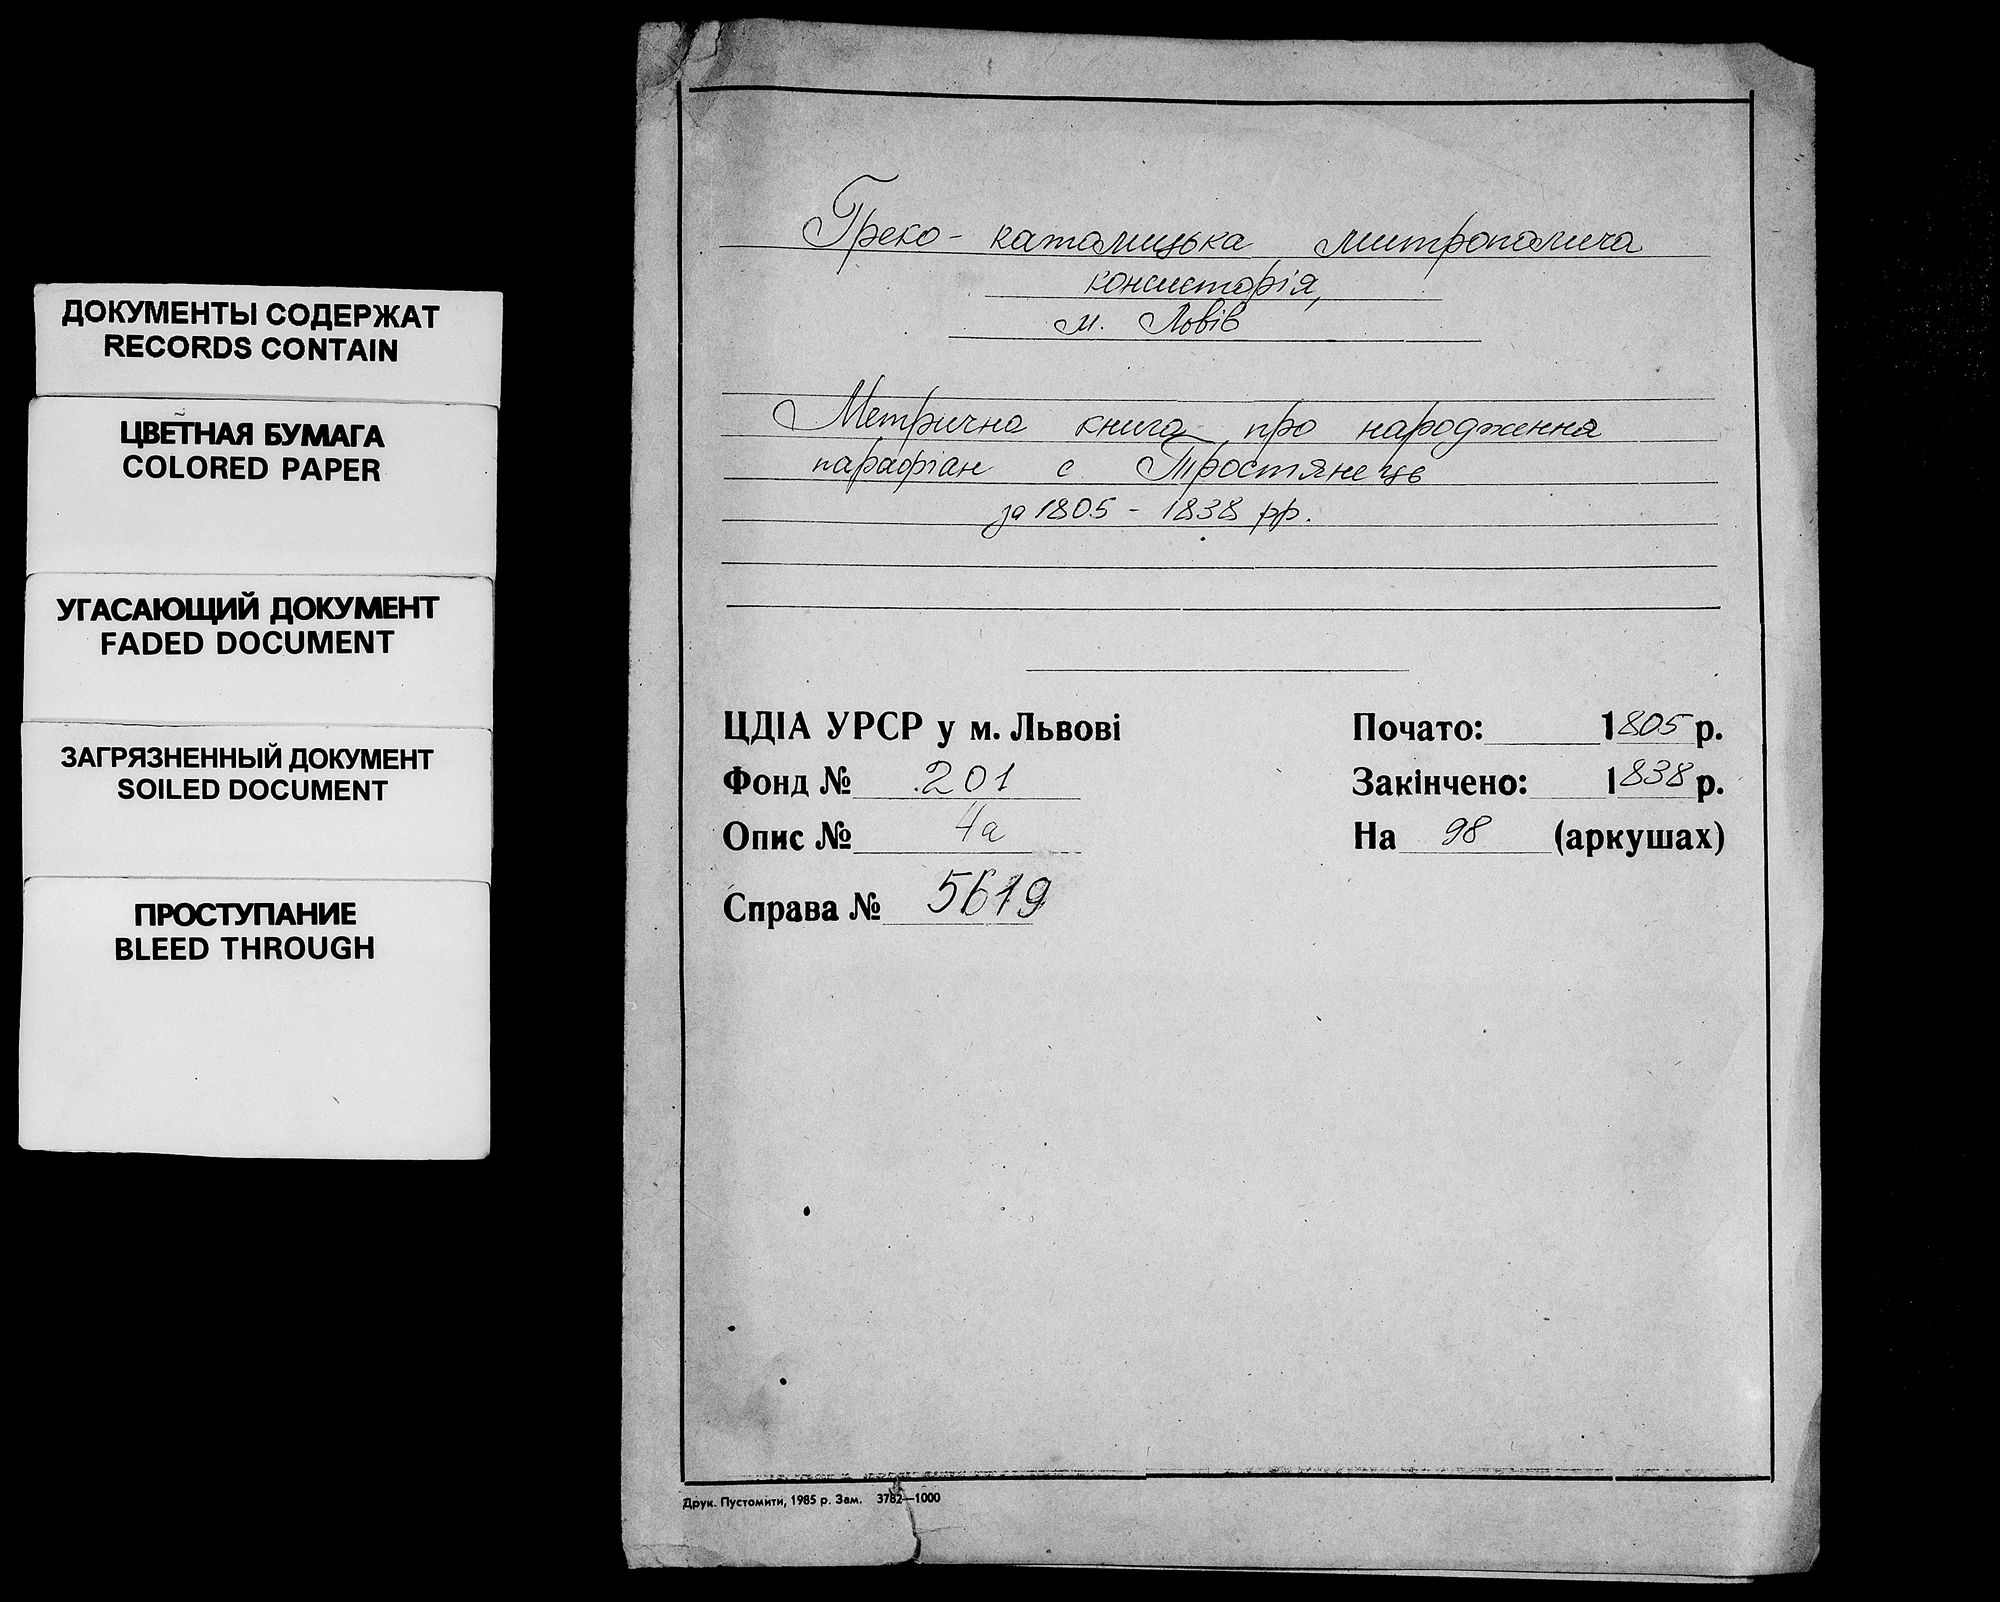 ДОКУМЕНТЫ СОДЕРЖАТ
RECORDS CONTAIN
ЦВЕТНАЯ БУМАГА
COLORED PAPER
УГАСАЮЩИЙ ДОКУМЕНТ
FADED DOCUMENT
ЗАГРЯЗНЕННЫЙ ДОКУМЕНТ
SOILED DOCUMENT
ПРОСТУПАНИЕ
BLEED THROUGH
Греко-католицька митрополича
консисторія,
м. Львів
Метрична книга про народження
парафіан с. Тростянець
за 1805 - 1838 рр.
ЦДІА УРСР у м. Львові
Фонд № 201
Опис № 4а
Справа № 5619
Почато: 1805 р.
Закінчено: 1838 р.
На 98 (аркушах)
Друк. Пустомити, 1985 р. Зам. 3782—1000